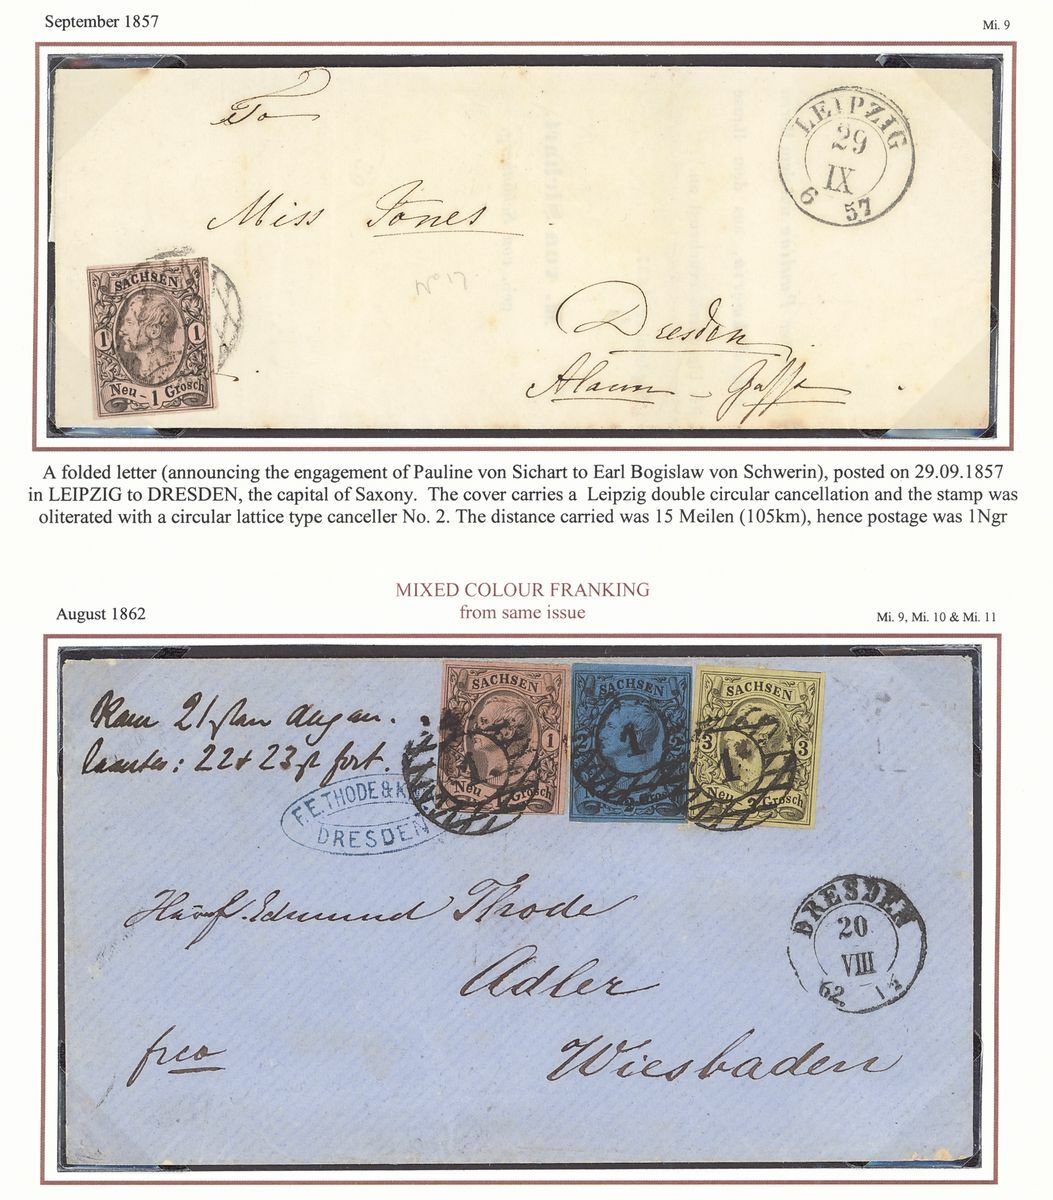 September 1857
Mi. 9
To
Miss Jones
Dresden
Alaun-Gasse
No 17
LEIPZIG
29
IX
6 57
SACHSEN
1 1
Neu-1 Grosch
A folded letter (announcing the engagement of Pauline von Sichart to Earl Bogislaw von Schwerin), posted on 29.09.1857
in LEIPZIG to DRESDEN, the capital of Saxony. The cover carries a Leipzig double circular cancellation and the stamp was
oliterated with a circular lattice type canceller No. 2. The distance carried was 15 Meilen (105km), hence postage was 1Ngr
MIXED COLOUR FRANKING
from same issue
August 1862
Mi. 9, Mi. 10 & Mi. 11
21
22 + 23 fort.
F.E. THODE & K
DRESDEN
SACHSEN
1
Neu Grosch
1
SACHSEN
2
2 Grosch
1
SACHSEN
3 3
Neu 3 Grosch
1
Edmund Thode
Adler
Wiesbaden
frco
DRESDEN
20
VIII
62